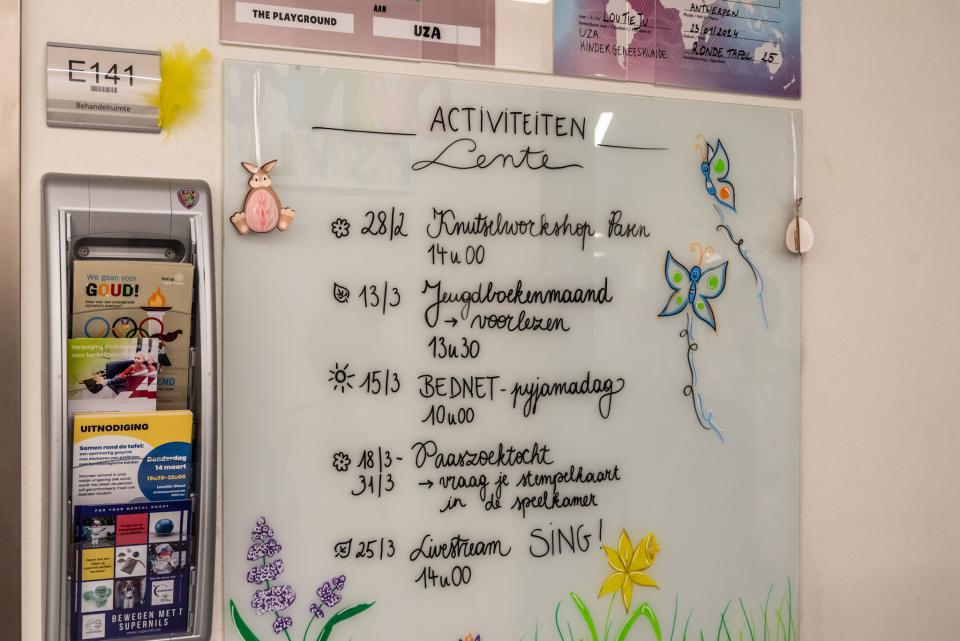 THE PLAYGROUND
AAN
UZA
LOUTIEJU
UZA
KINDERGENEESKUNDE
ANTWERPEN
23/01/2024
RONDE TAFEL 25
E141
Behandelruimte
ACTIVITEITEN
Lente
28/2 Knutselworkshop Pasen
14u00
13/3 Jeugdboekenmaand
→ voorlezen
13u30
15/3 BEDNET-pyjamadag
10u00
18/3- Paaszoektocht
31/3 → vraag je stempelkaart
in de speelkamer
25/3 Livestream SING!
14u00
We gaan voor
GOUD!
Verzorging en
voor kanker
UITNODIGING
Samen rond de tafel:
een openhartig gesprek
Donderdag
14 maart
19u30-22u00
FOR YOUR MENTAL BOOST
BEWEGEN MET
SUPERNILS